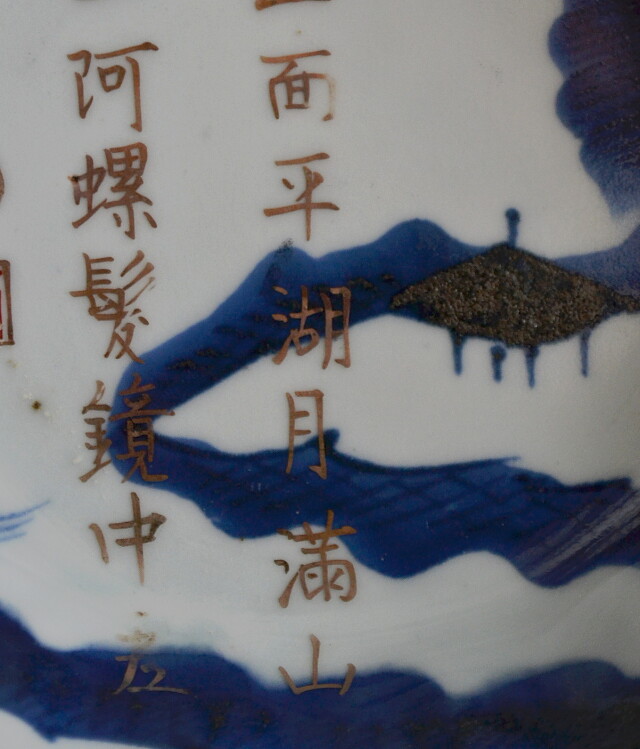 面平湖月滿山
阿螺髮鏡中